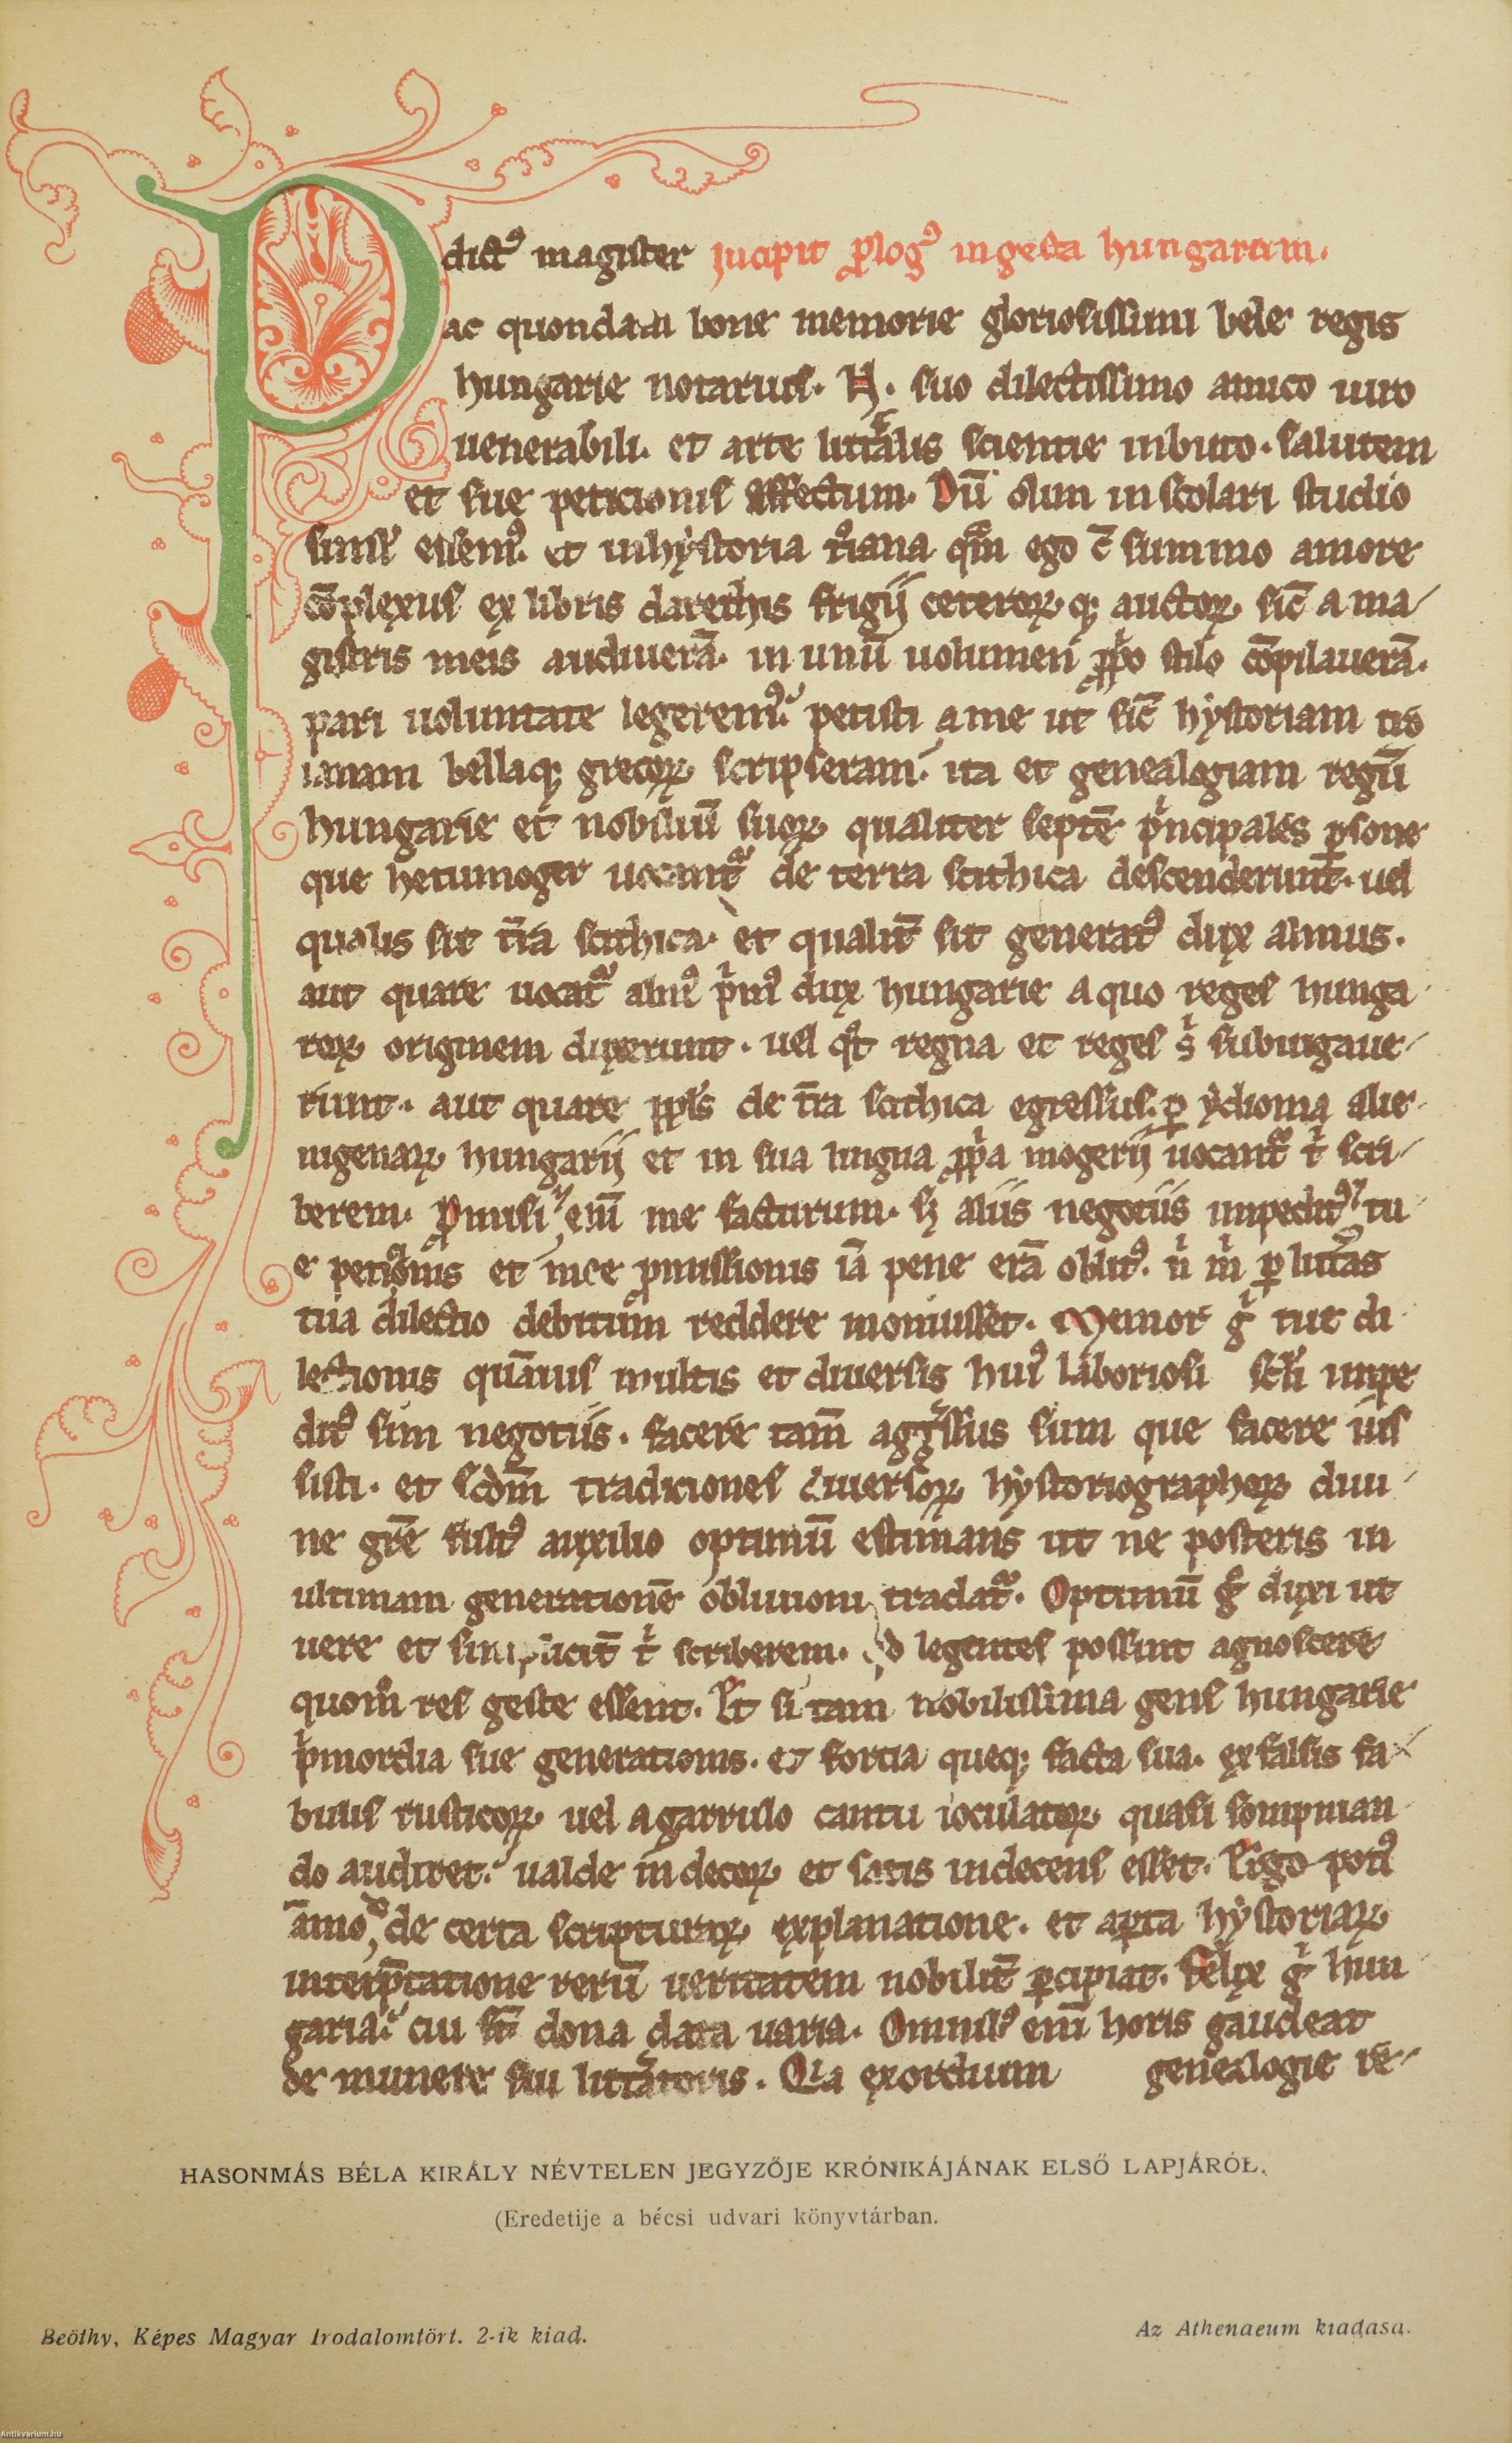 P dictꝰ magister Incipit ꝓlogꝰ in gesta hungarum.
ac quondam bone memorie gloriosissimi bele regis
hungarie notarius. N. suo dilectissimo amico uiro
uenerabili. et arte litt̾alis scientie inbuto. salutem
et sue peticionis affectum. Dū olim in scolari studio
simul essemꝰ. et in hẏstoria tͦiana qͣm ego c̄ summo amore
cōplexus ex libris darethis frigii ceteroꝝ qꝫ auctoꝝ sic̄ a ma
gistris meis audiuerā. in unū uolumen ꝓpͥo stilo cōpilauerā.
pari uoluntate legeremꝰ. petisti a me ut sic̄ hystoriam tro
ianam bellaqꝫ grecoꝝ scripseram. ita et genealogiam regū
hungarie et nobiliū suoꝝ qualiter septē pͥncipales ꝑsone
que hetumoger uocant᷑ de terra scithica descenderunt̄. uel
qualis sit t̄ra scithica. et qualit̄ sit generatꝰ dux almus.
aut quare uocat᷑ almꝰ pͥmꝰ dux hungarie a quo reges hunga
roꝝ originem duxerunt. uel qͦt regna et reges sͥ subiugaue
runt. aut quare ppl̓s de t̄ra scithica egressus. ꝑ ẏdioma alie
nigenaꝝ hungarii et in sua lingua ꝓpͥa mogerii uocant᷑ tͥ scri
berem. Promisi enī me facturum. sꝫ aliis negotiis impeditꝰ tu
e petic̄onis et mee ꝓmissionis iā pene erā oblitꝰ. nͥ mͥ ꝑ litt̾as
tua dilectio debitum reddere monuisset. Memor gͥ tue di
lectionis quāuis multis et diuersis huiꝰ laboriosi scl̓i impe
ditꝰ sim negotiis. facere tam̄ aggͤssus sum que facere ius
sisti. et scd̄m tradiciones diuersoꝝ hẏstoriographoꝝ diui
ne gr̄e fultꝰ auxilio optimū estimans ut ne posteris in
ultimam generationē obliuioni tradat᷑. Optimū gͦ duxi ut
uere et simplicit̄ tͥ scriberem. qd legentes possint agnoscere
quom̊ res geste essent. Et si tam nobilissima gens hungarie
pͥmordia sue generationis. et fortia queqꝫ facta sua. ex falsis fa
bulis rusticoꝝ uel a garrulo cantu ioculatoꝝ quasi sompnian
do audiret. ualde indecoꝝ et satis indecens esset. Ergo potiꝰ
āmodo de certa scripturaꝝ explanatione. et aꝑta hẏstoriaꝝ
interp̄tatione rerū ueritatem nobilit̄ ꝑcipiat. Felix gͥ hun
garia. cui st̄ dona data uaria. Omnibꝰ enī horis gaudeat
de munere sui litt̾atoris. Qͥa exordium genealogie re
HASONMÁS BÉLA KIRÁLY NÉVTELEN JEGYZŐJE KRÓNIKÁJÁNAK ELSŐ LAPJÁRÓL.
(Eredetije a bécsi udvari könyvtárban.
Beöthy, Képes Magyar Irodalomtört. 2-ik kiad.
Az Athenaeum kiadasa.
Antikvarium.hu